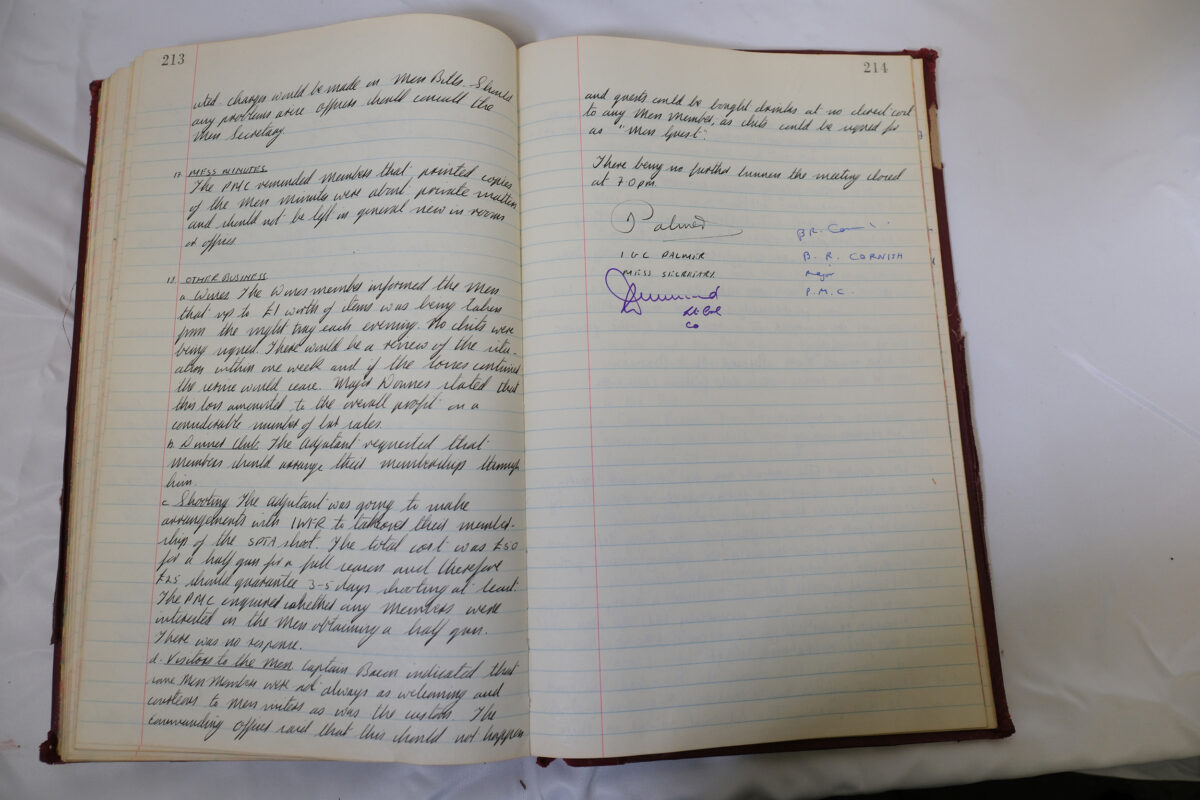 213
ated charges would be made in Mess Bills. Should
any problems arise officers should consult the
Mess Secretary.
MESS MINUTES
The PMC reminded Members that printed copies
of the Mess Minutes were about private matters
and should not be left in general view in rooms
or offices.
OTHER BUSINESS
a. Wines The Wines member informed the Mess
that up to £1 worth of items was being taken
from the night tray each evening. No chits were
being signed. There would be a review of the situ-
ation within one week and if the losses continued
the service would cease. Major Downes stated that
this loss amounted to the overall profit on a
considerable number of bar sales.
b. Dinner Club. The Adjutant requested that
members should arrange their membership through
him.
c. Shooting The Adjutant was going to make
arrangements with 1WFR to takeover their member-
ship of the SPTA shoot. The total cost was £50
for a half gun for a full season and therefore
£25 should guarantee 3-5 days shooting at least.
The PMC enquired whether any Members were
interested in the Mess obtaining a half gun.
There was no response.
d. Visitors to the Mess Captain Bacon indicated that
some Mess Members were not always as welcoming and
courteous to Mess visitors as was the custom. The
Commanding Officer said that this should not happen
214
and guests could be bought drinks at no direct cost
to any Mess Member, as chits could be signed for
as "Mess Guest".
There being no further business the meeting closed
at 70pm.
Palmer
I G C PALMER
MESS SECRETARY
Lt Col
CO
B.R. Corni
B. R. CORNISH
Major
P.M.C.